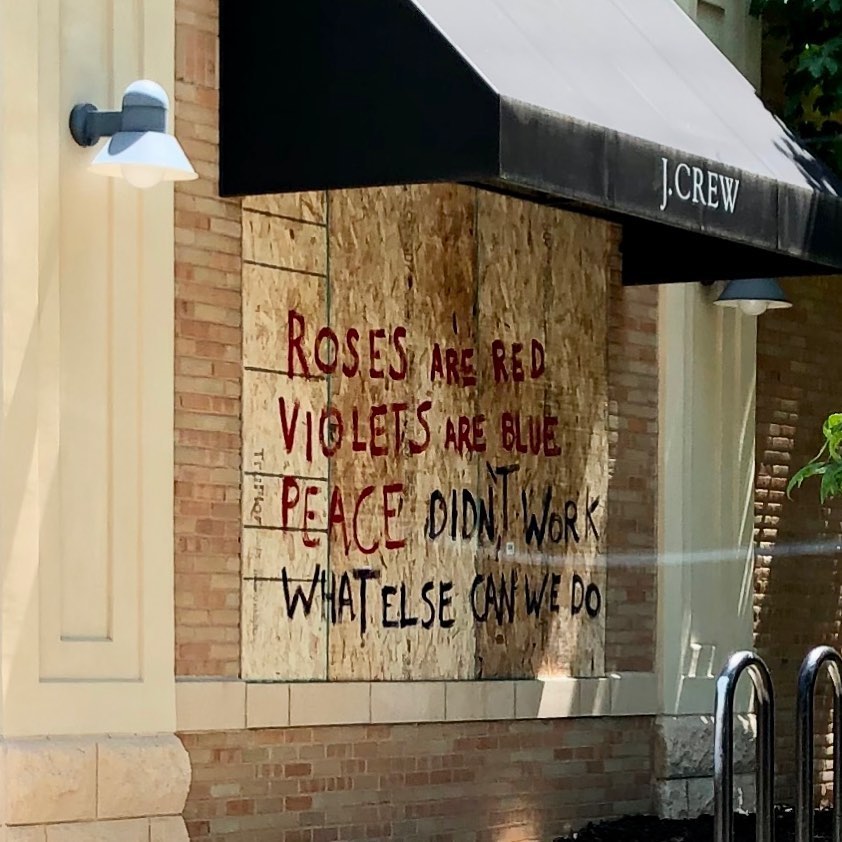 J.CREW
ROSES ARE RED
VIOLETS ARE BLUE
PEACE DIDN'T WORK
WHAT ELSE CAN WE DO